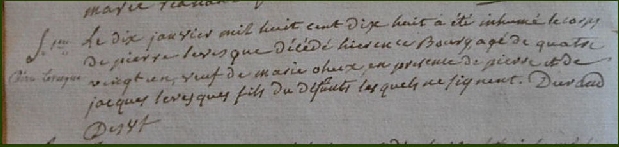 marie
Le dix janvier mil huit cent dix huit a été inhumé le corps
de pierre levesque décédé hier en ce Bourg agé de quatre
vingt un, veuf de marie en presence de pierre et de
jacques levesques fils du défunts lesquels ne signent. Durand
Desvt